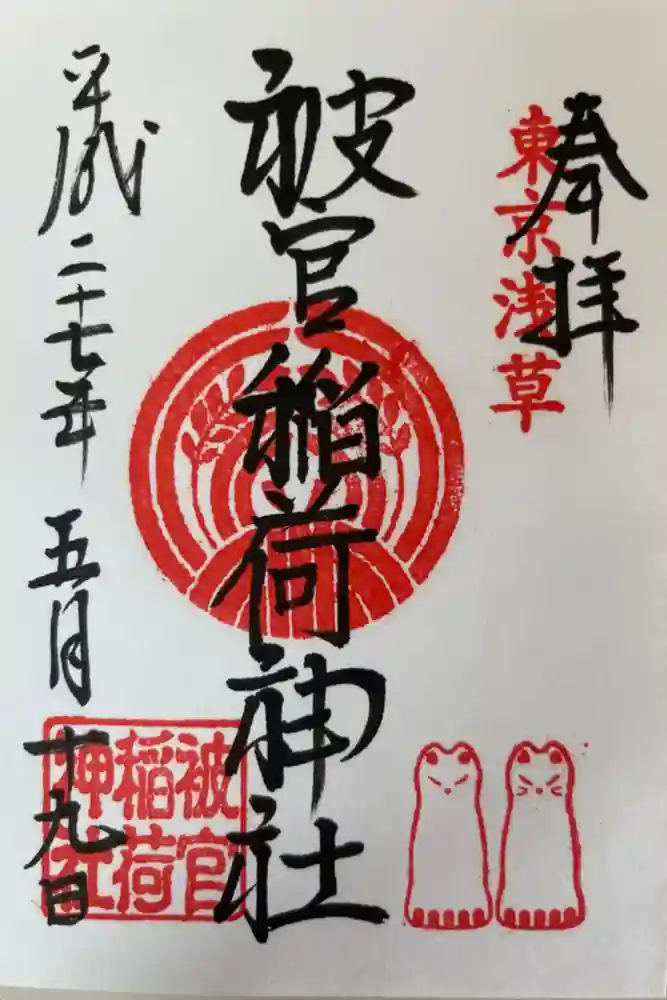 奉拝
東京浅草
被官稲荷神社
被官
稲荷
神社
平成二十七年五月十九日